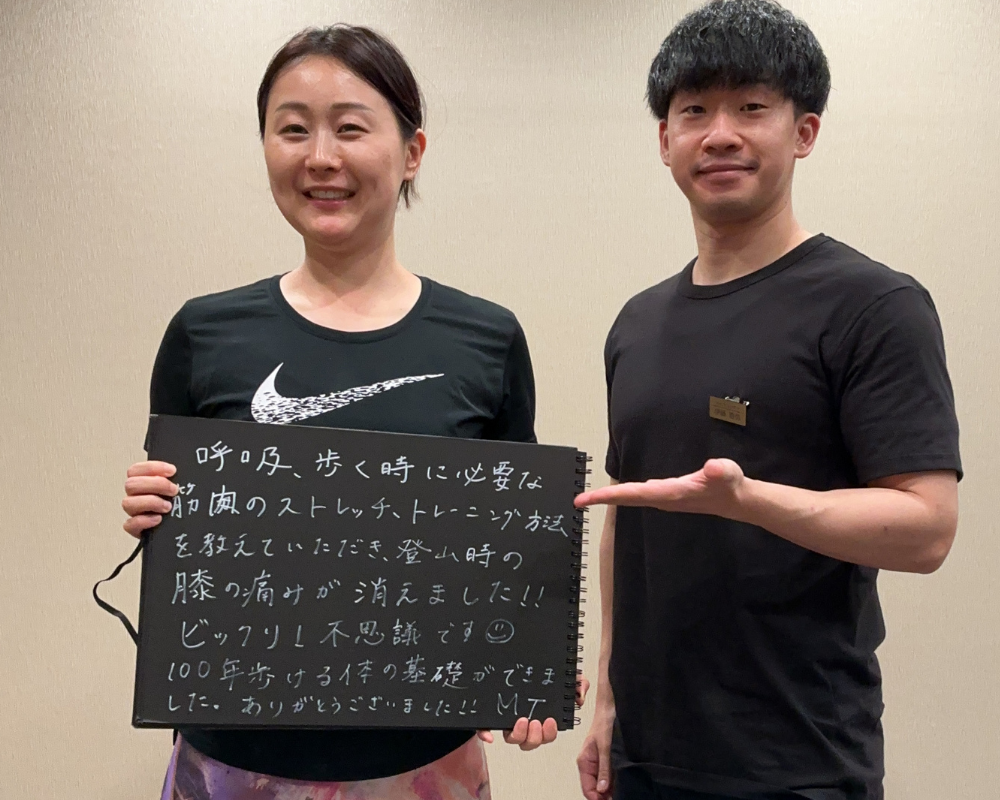 呼吸、歩く時に必要な
筋肉のストレッチ、トレーニング方法
を教えていただき、登山時の
膝の痛みが消えました!!
ビックリ!不思議です
100年歩ける体の基礎ができま
した。ありがとうございました!! MT